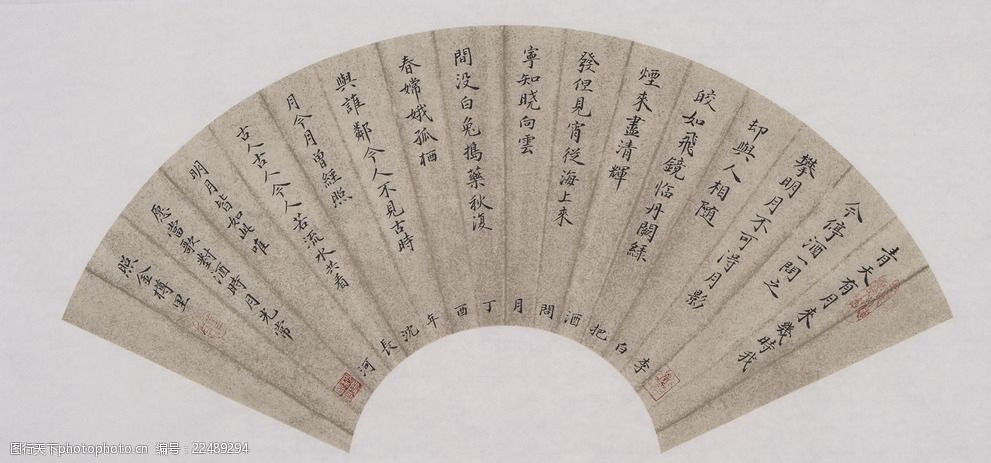 青天有月來幾時我
今停酒一問之
攀明月不可淂月影
却與人相随
皎如飛鏡临丹闕緑
煙來盡清輝
發但見宵從海上來
寧知晓向雲
間没白兔搗藥秋復
春嫦娥孤栖
與誰鄰今人不見古時
月今月曾經照
古人古人今人若流水共看
明月皆如此唯
愿當歌對酒時月光常
照金樽里
李白把酒問月丁酉年沈長河
图行天下photophoto.cn 编号:22489294